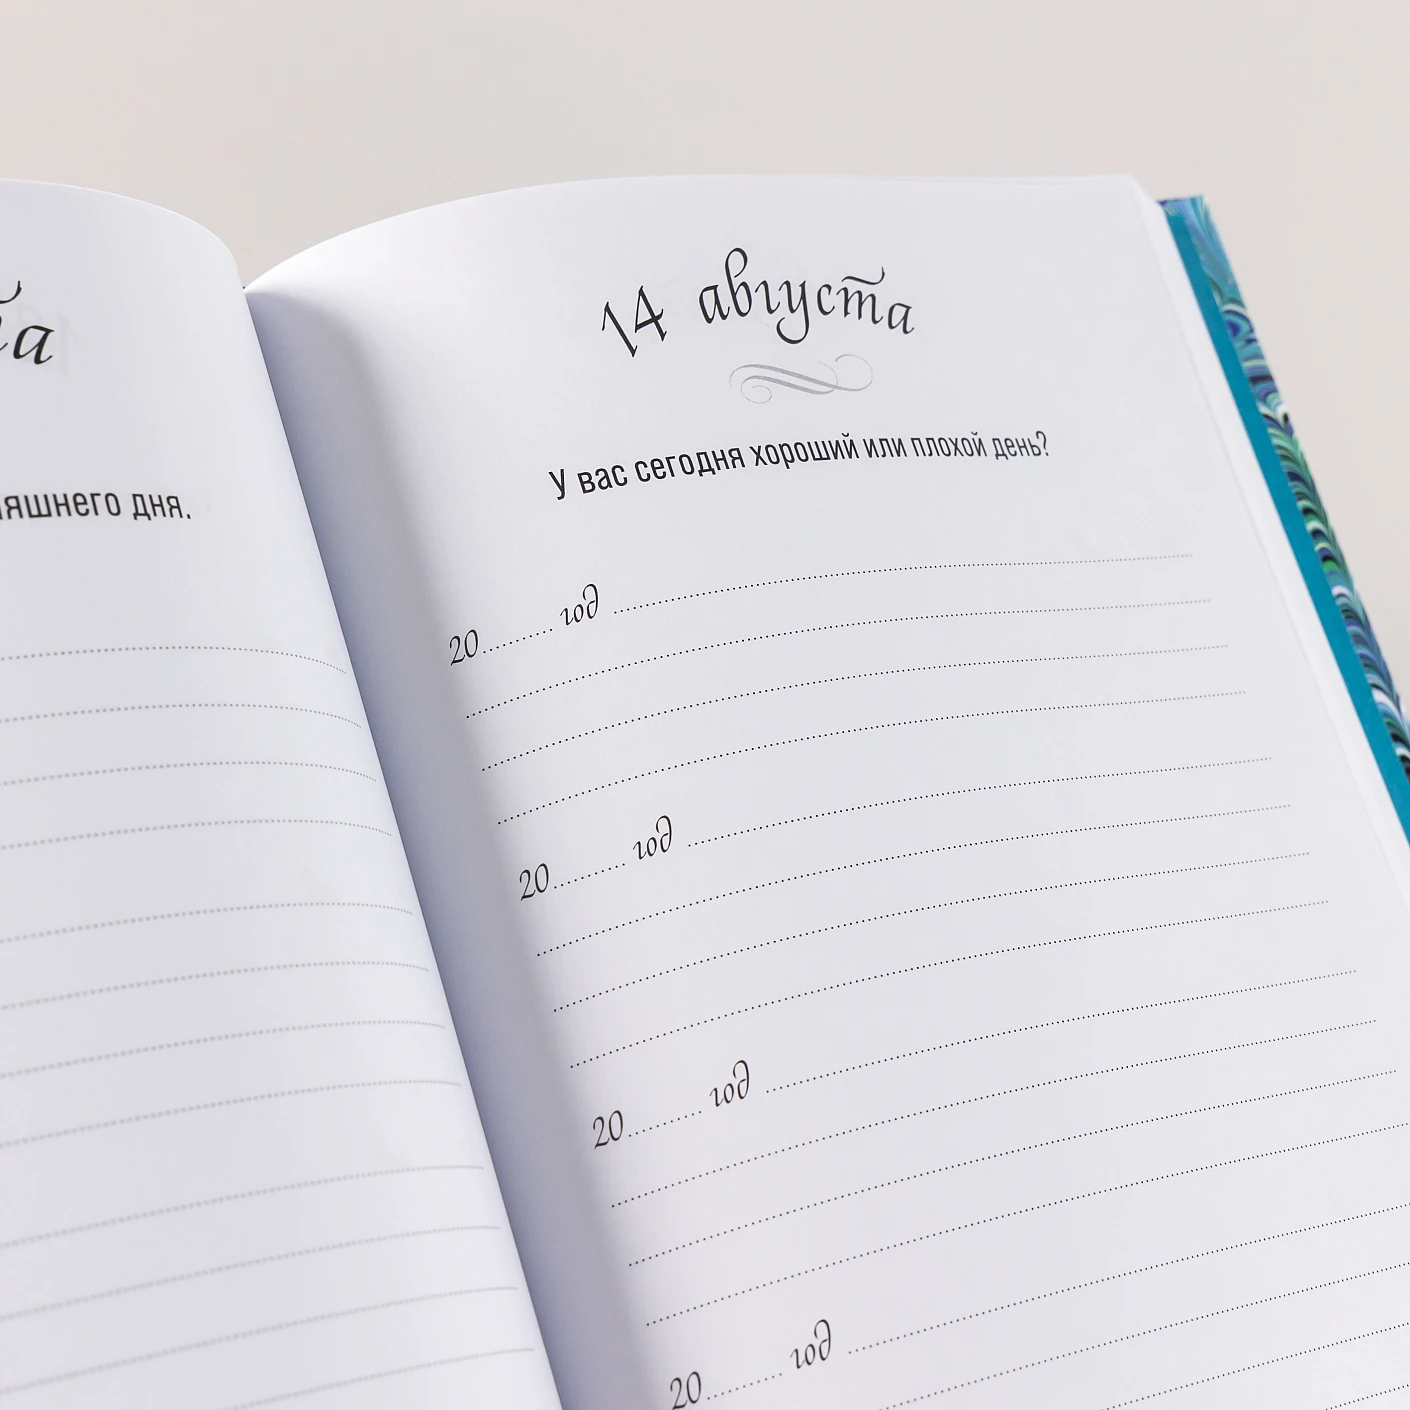 14 августа
У вас сегодня хороший или плохой день?
20........ год
20........ год
20........ год
20........ год
дня.